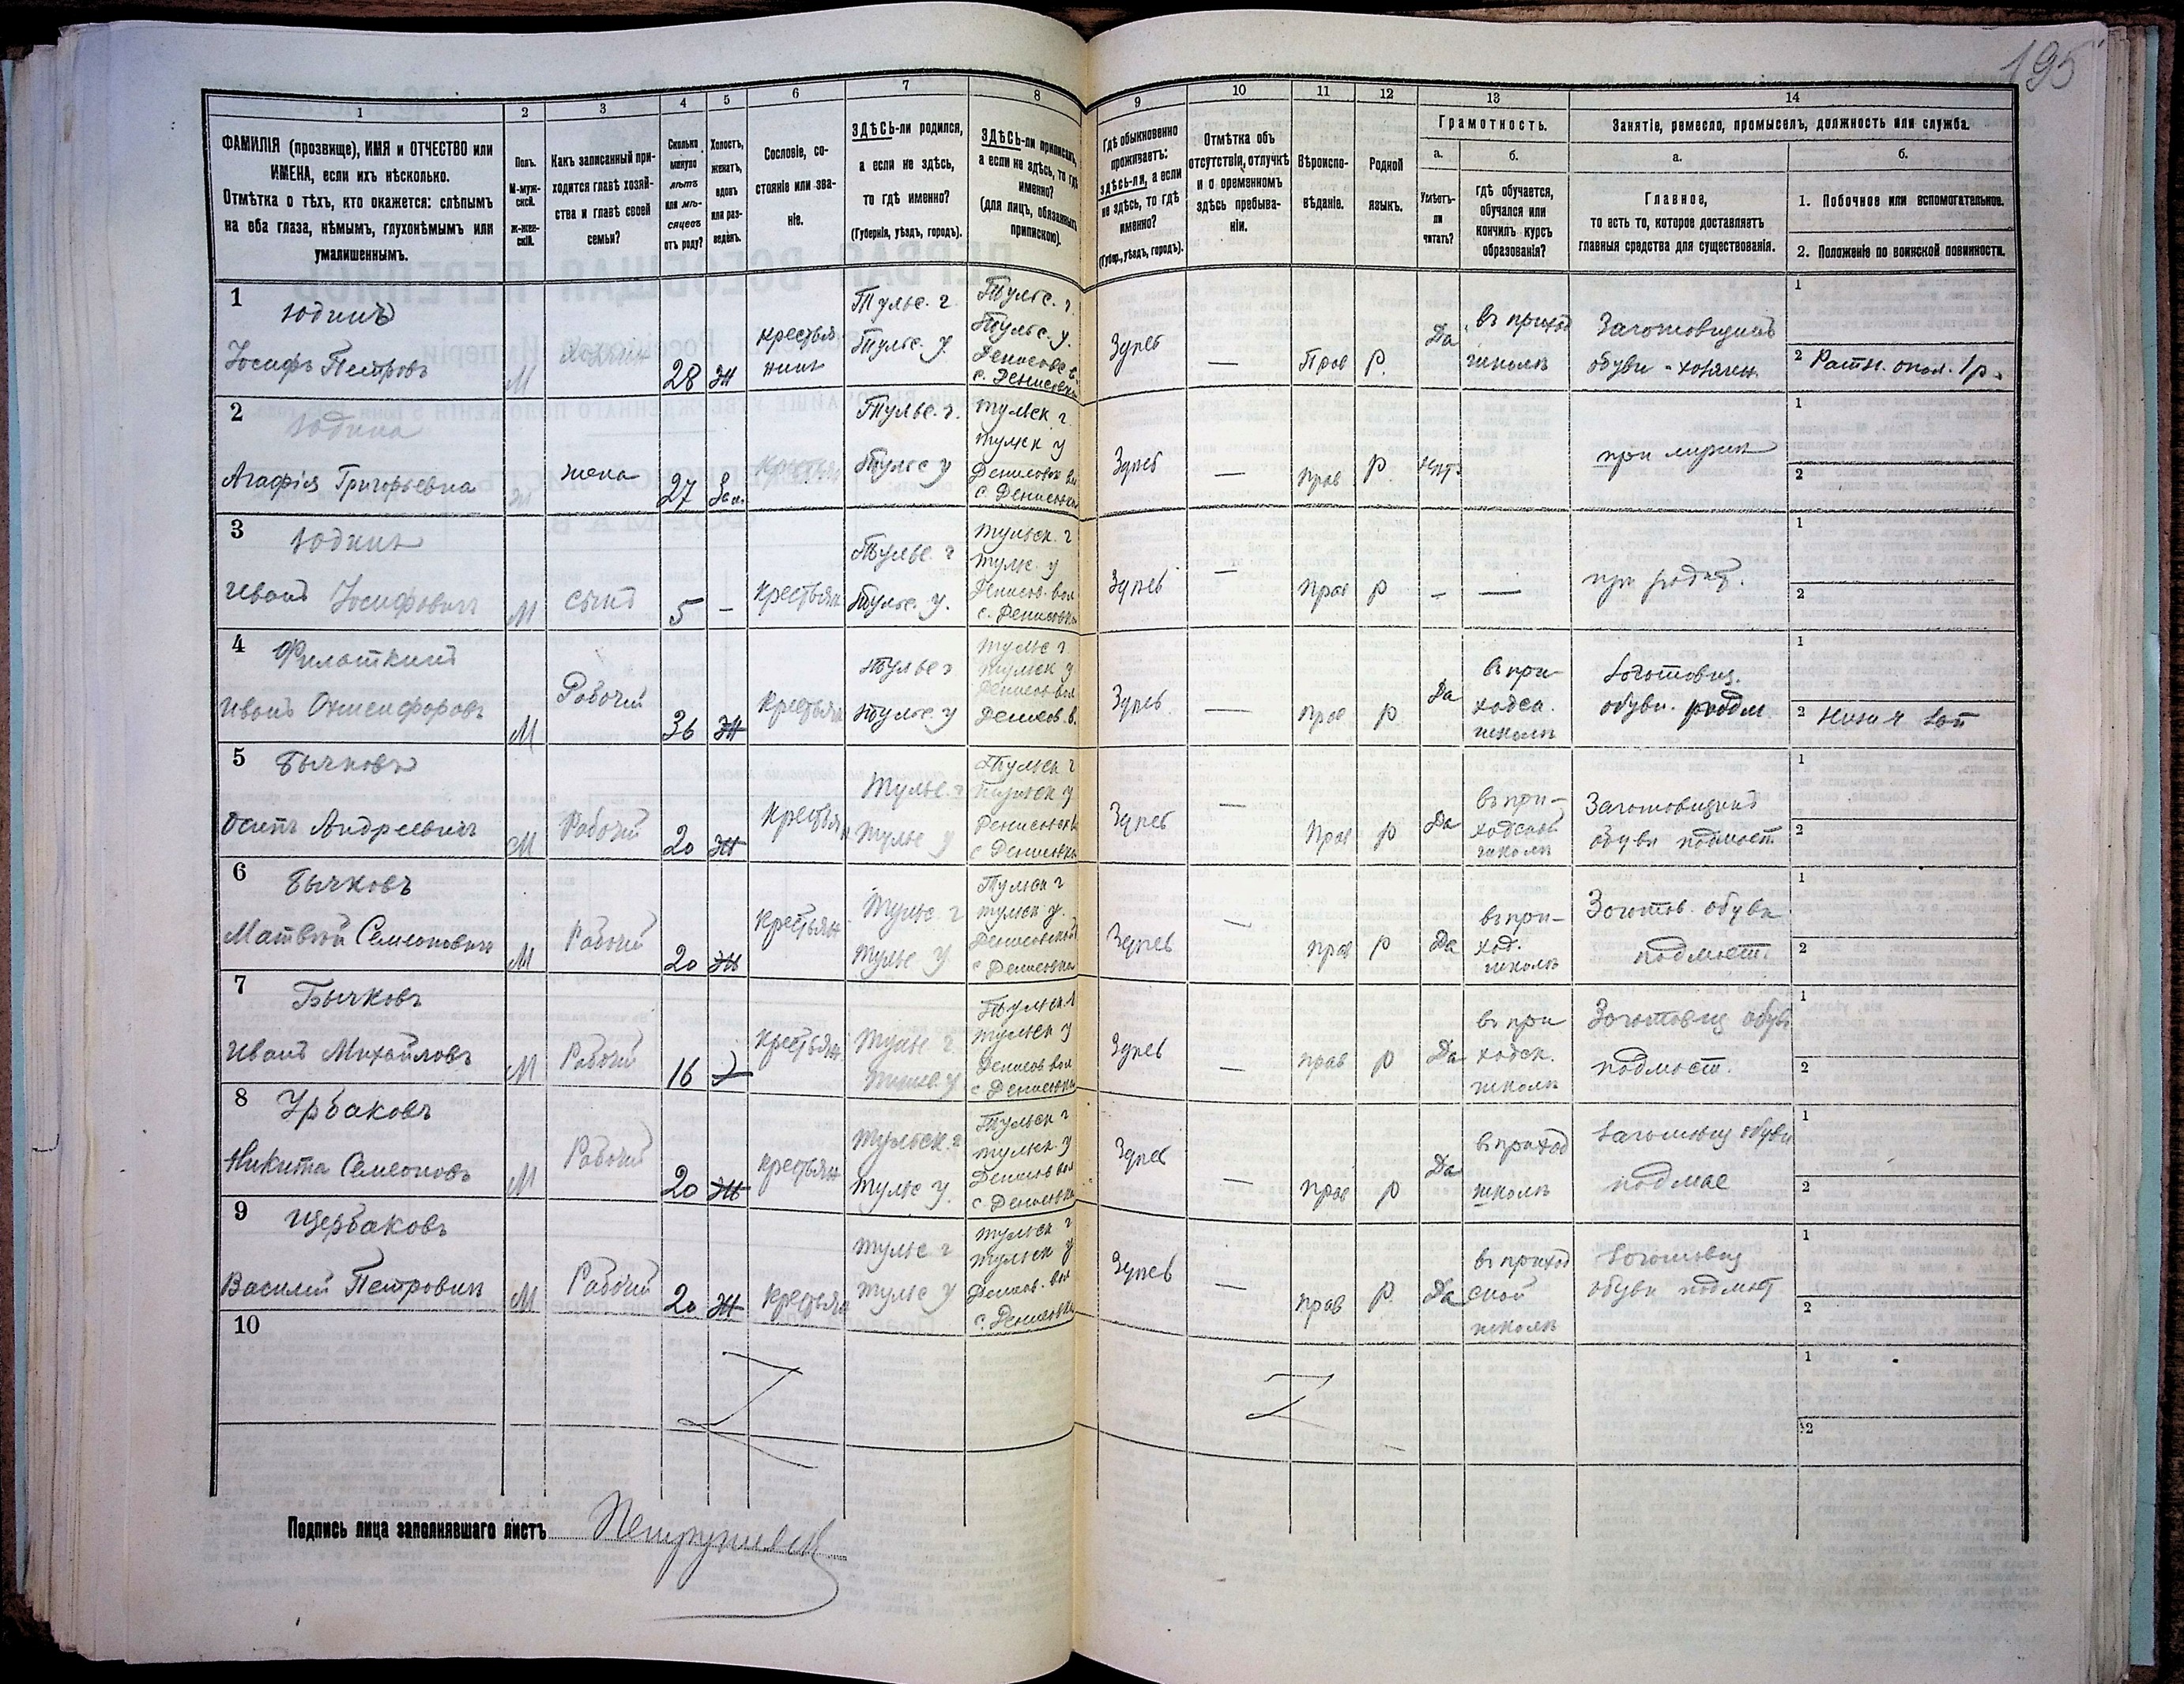 195
1 2 3 4 5 6 7 8 9 10 11 12 13 14
ФАМИЛІЯ (прозвище), ИМЯ и ОТЧЕСТВО или
ИМЕНА, если ихъ нѣсколько.
Отмѣтка о тѣхъ, кто окажется: слѣпымъ
на оба глаза, нѣмымъ, глухонѣмымъ или
умалишеннымъ.
Полъ.
М-муж-
ской.
Ж-жен-
скій.
Какъ записанный при-
ходится главѣ хозяй-
ства и главѣ своей
семьи?
Сколько
минуло
лѣтъ
или мѣ-
сяцевъ
отъ роду?
Холостъ,
женатъ,
вдовъ
или раз-
веденъ.
Сословіе, со-
стояніе или зва-
ніе.
ЗДѢСЬ-ли родился,
а если не здѣсь,
то гдѣ именно?
(Губернія, уѣздъ, городъ).
ЗДѢСЬ-ли приписанъ,
а если не здѣсь, то гдѣ
именно?
(для лицъ, обязанныхъ
припискою).
Гдѣ обыкновенно
проживаетъ:
здѣсь-ли, а если
не здѣсь, то гдѣ
именно?
(Губер., уѣздъ, городъ).
Отмѣтка объ
отсутствіи, отлучкѣ
и о временномъ
здѣсь пребыва-
ніи.
Вѣроиспо-
вѣданіе.
Родной
языкъ.
Грамотность.
а.
Умѣетъ-
ли
читать?
б.
гдѣ обучается,
обучался или
кончилъ курсъ
образованія?
Занятіе, ремесло, промыселъ, должность или служба.
а.
Главное,
то есть то, которое доставляетъ
главныя средства для существованія.
б.
1. Побочное или вспомогательное.
2. Положеніе по воинской повинности.
1 Юдинъ
Іосифъ Петровъ
М
хозяинъ
28
Ж
крестья
нинъ
Тульс. г.
Тульс. у.
Тульс. г.
Тульс. у.
с. Денисовка
Здѣсь
—
Прав
р.
Да
въ приход
школѣ
Заготовщикъ
обуви - хозяин
1
2 Ратн. опол. 1 р.
2 Юдина
Агафія Григорьевна
ж
жена
27
Зам.
крестьян
Тульс. г.
Тульс у
Тульск. г.
Тульск у
с. Денисовка
Здѣсь
—
прав
р.
нѣтъ
при мужѣ
1
2
3 Юдинъ
Иванъ Іосифовичъ
М
сынъ
5
—
крестьян
Тульс. г
Тульс. у.
Тульск. г
Тульс. у
Денисов. вол
с. Денисовка
Здѣсь
—
прав
р
—
—
при родит.
1
2
4 Филаткинъ
Иванъ Онисифоровъ
М
Рабочій
36
Ж
крестьян
Тульс г
Тульс. у
Тульс г.
Тульск у
Здѣсь
—
прав
р
Да
въ при-
ходск.
школѣ
Заготовщ.
обуви.
1
2
5 Бычковъ
Осипъ Андреевичъ
М
Рабочій
20
Ж
крестьян
Тульс. г
Тульс у
Тульск г
Тульск у
с. Денисовка
Здѣсь
—
Прав
р
Да
въ при-
ходской
школѣ
Заготовщикъ
обуви подмаст
1
2
6 Бычковъ
Матвѣй Семеновичъ
М
Рабочій
20
Ж
крестьян
Тульс. г
Тульс у
Тульск г
Тульск у.
с. Денисовка
Здѣсь
—
прав
р
Да
въ при-
ход.
школѣ
Заготов. обуви
подмаст.
1
2
7 Бычковъ
Иванъ Михайловъ
М
Рабочій
16
Х
крестьян
Тульс г.
Тульс. у
Тульск г
Тульск у
Денисов вол
с. Денисовка
Здѣсь
—
прав
р
Да
въ при
ходск.
школѣ
Заготовщ обув
подмаст.
1
2
8
Никита Семеновъ
М
Рабочій
20
Ж
крестьян
Тульск. г
Тульс у.
Тульск г
Тульск у
Денисов вол
с. Денисовка
Здѣс
—
прав
р
Да
въ приход
школѣ
Заготовщ обуви
подмас
1
2
9 Щербаковъ
Василій Петровичъ
М
Рабочій
20
Ж
крестьян
Тульс г
Тульс у
Тульск г
Тульск у
Денисов. вол
с. Денисовка
Здѣсь
—
прав
р.
Да
въ приход
ской
школѣ
Заготовщ
обуви подмаст
1
2
10
1
2
Подпись лица заполнявшаго листъ